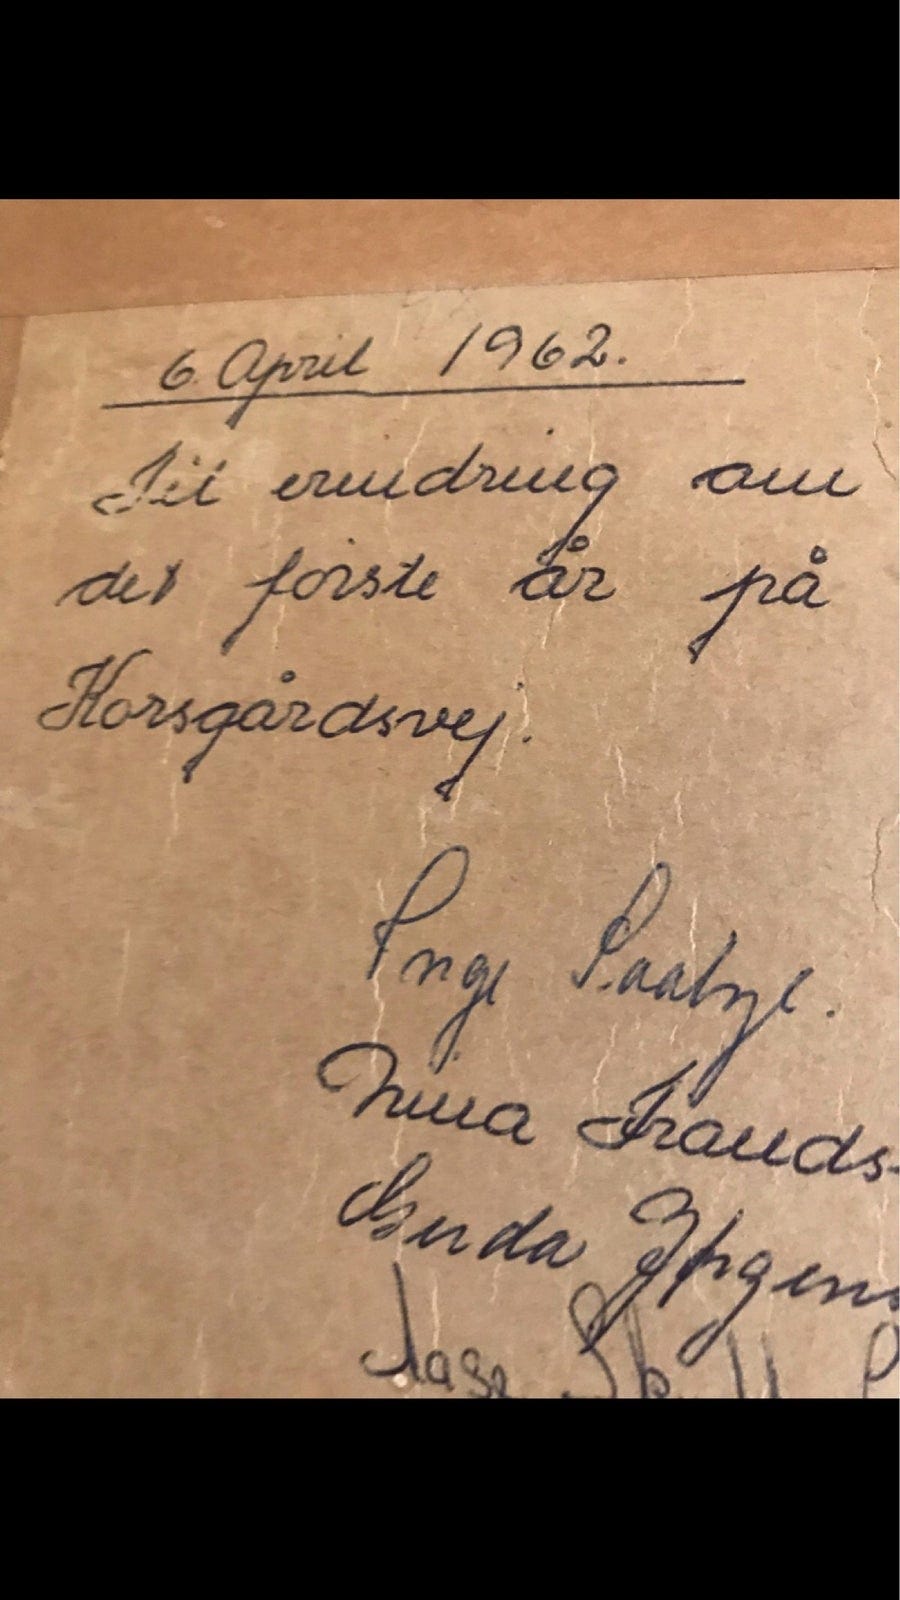 6. April 1962.
Til erindring om
det første år på
Korsgårdsvej.
Inge Saabye.
Nina Frands-
Gerda Jørgens
Aage